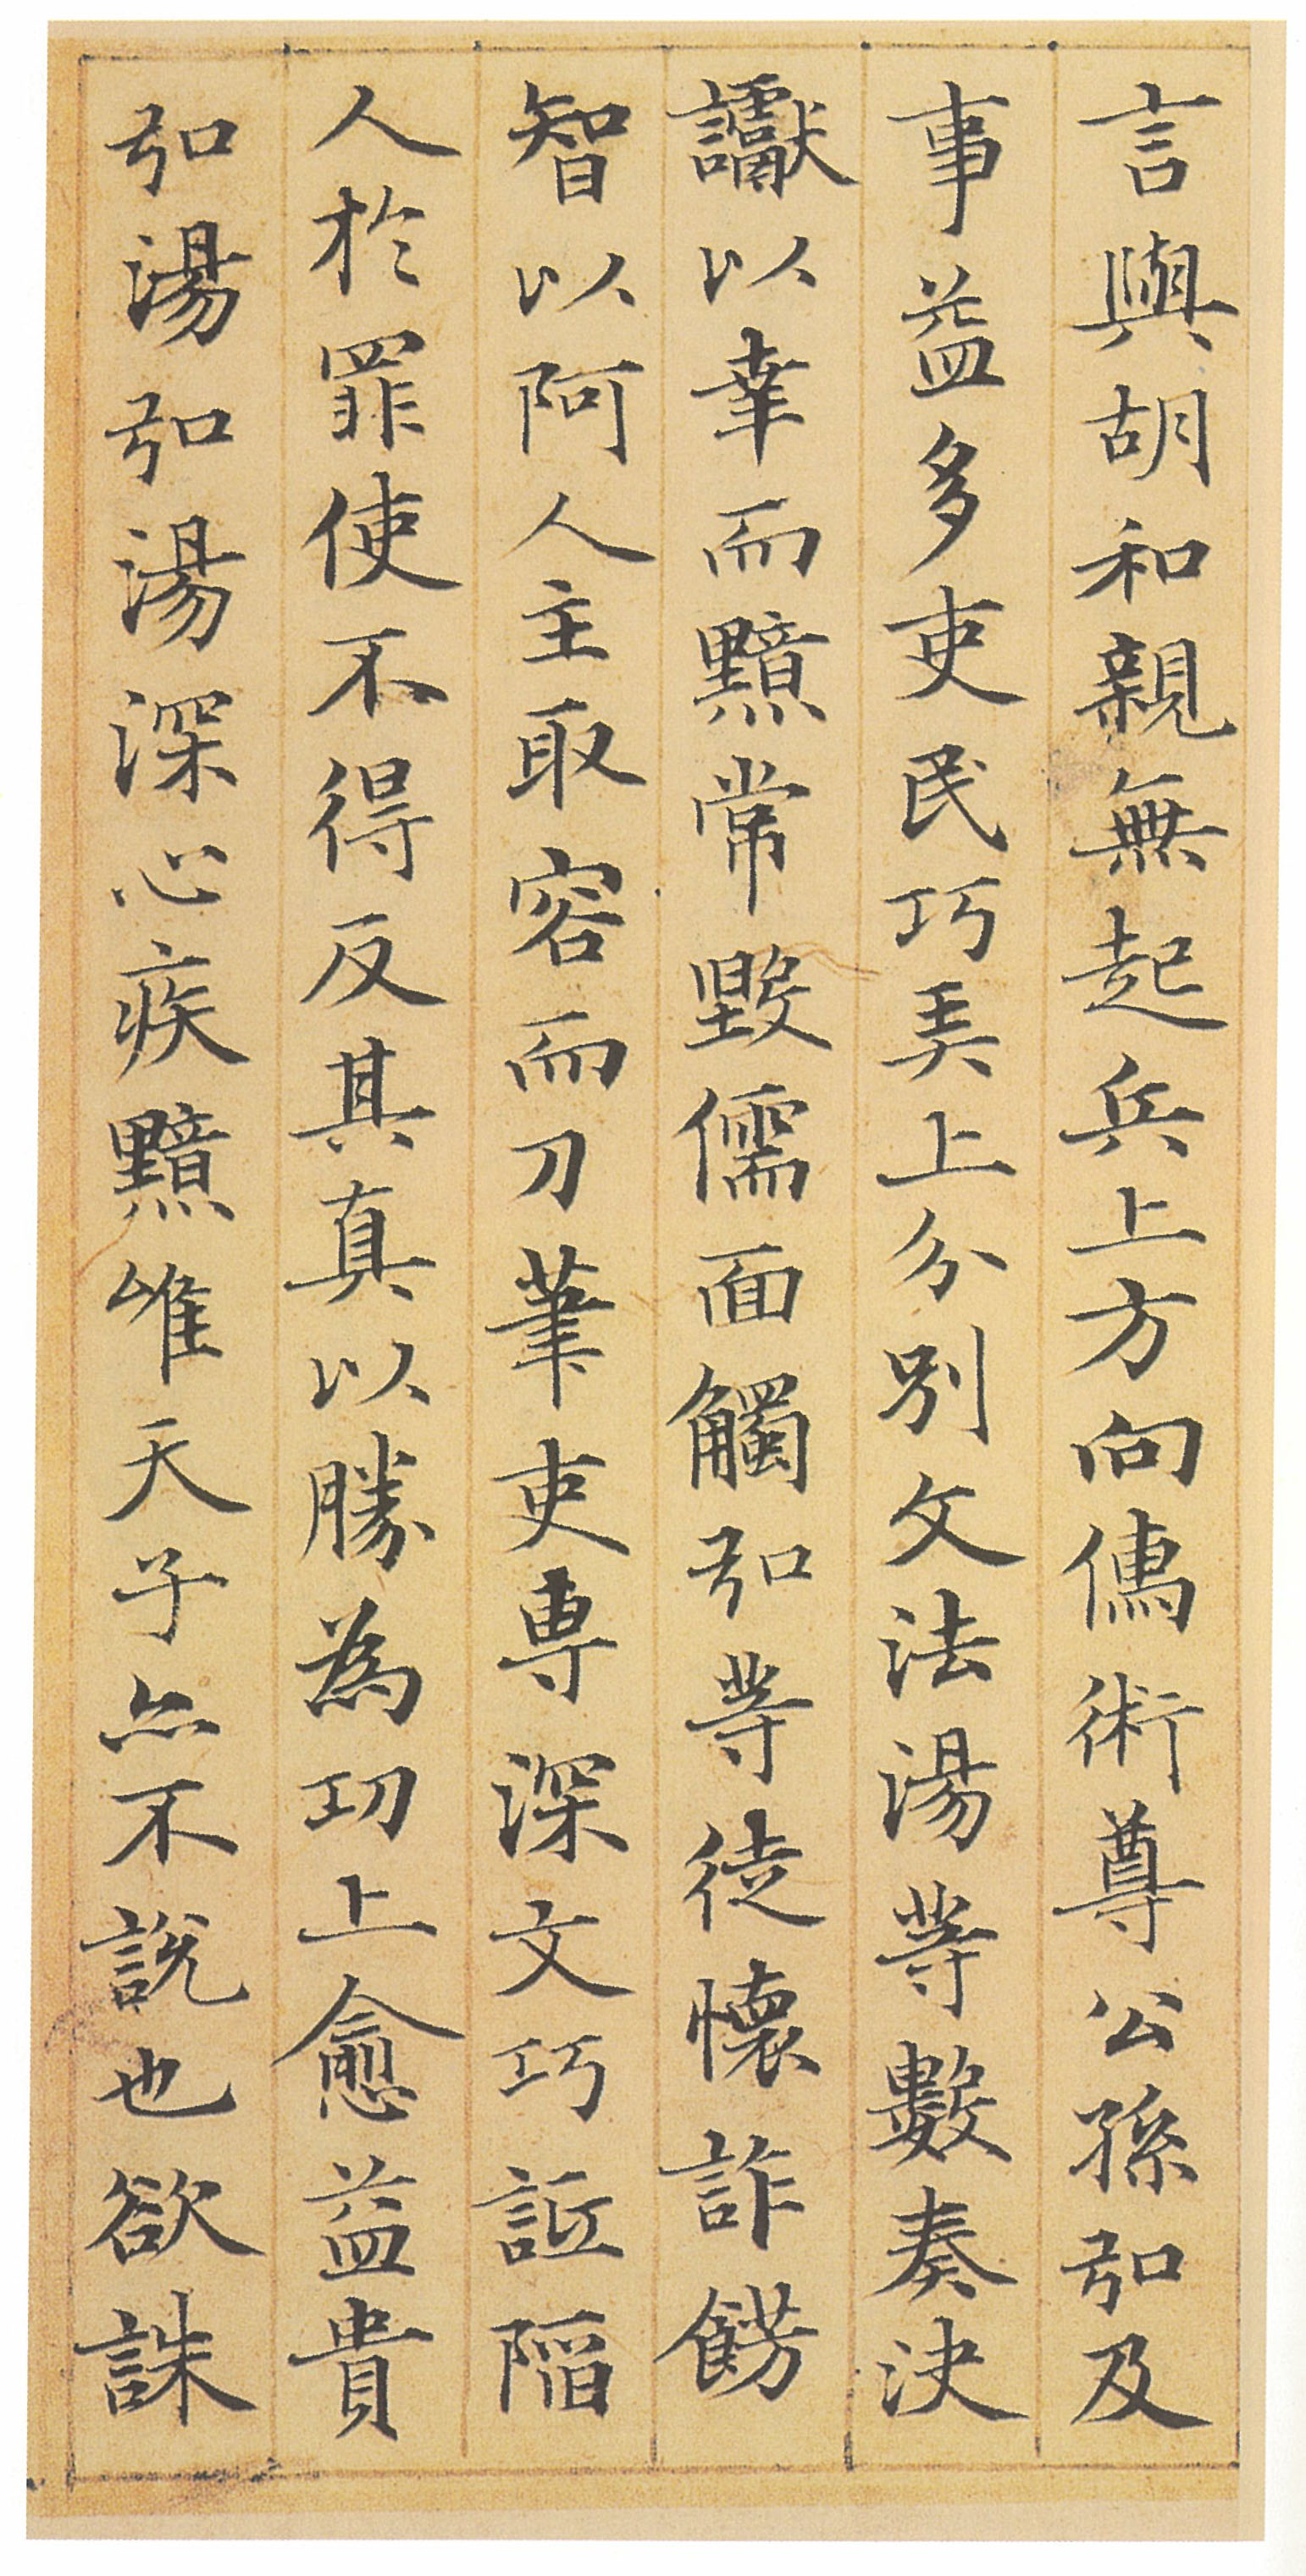 言與胡和親無起兵上方向儒術尊公孫弘及
事益多吏民巧弄上分別文法湯等數奏決
讞以幸而黯常毀儒面觸弘等徒懷詐飾
智以阿人主取容而刀筆吏專深文巧詆陷
人於罪使不得反其真真以勝為功上愈益貴
弘湯弘湯深心疾黯唯天子亦不說也欲誅